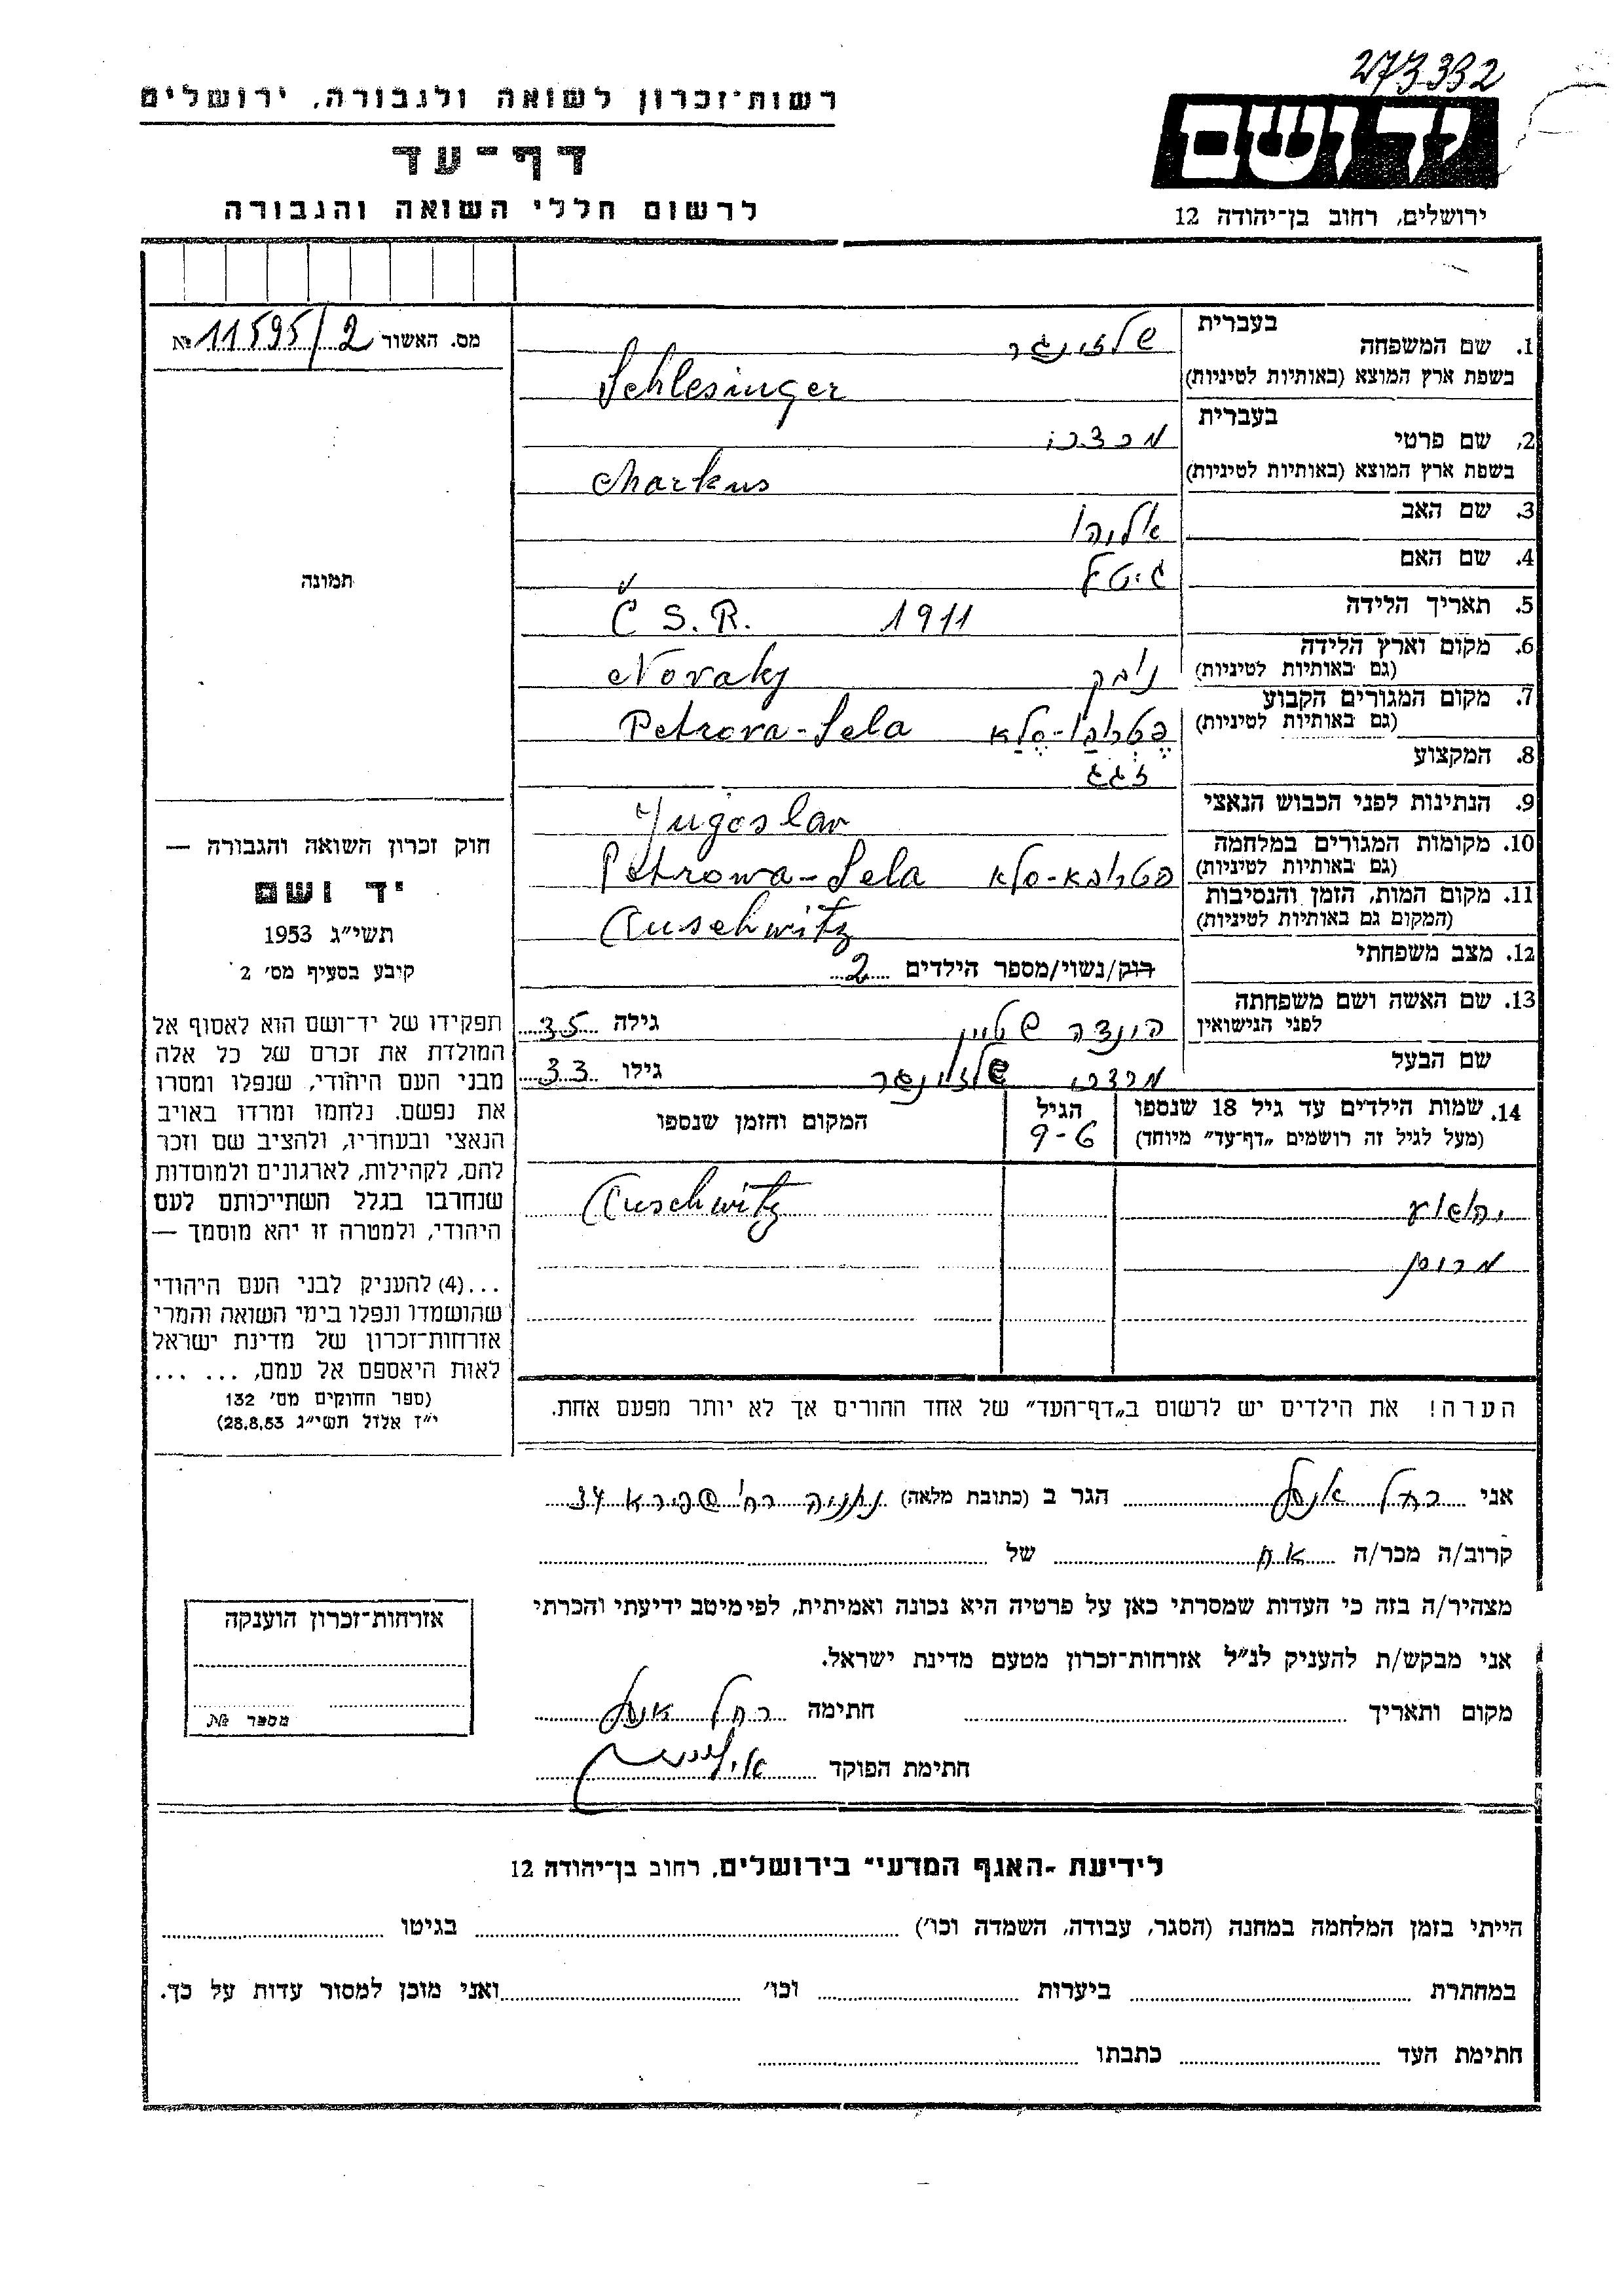 273332
רשות־זכרון לשואה ולגבורה, ירושלים
דף־עד
לרשום חללי השואה והגבורה
יד ושם
ירושלים, רחוב בן־יהודה 12
מס. האשור № 11595/2
תמונה
חוק זכרון השואה והגבורה —
יד ושם
תשי״ג 1953
קובע בסעיף מס׳ 2
תפקידו של יד־ושם הוא לאסוף אל
המולדת את זכרם של כל אלה
מבני העם היהודי, שנפלו ומסרו
את נפשם, נלחמו ומרדו באויב
הנאצי ובעוזריו, ולהציב שם וזכר
להם, לקהילות, לארגונים ולמוסדות
שנחרבו בגלל השתייכותם לעם
היהודי, ולמטרה זו יהא מוסמך —
...(4) להעניק לבני העם היהודי
שהושמדו ונפלו בימי השואה והמרי
אזרחות־זכרון של מדינת ישראל
לאות היאספם אל עמם, ... ...
(ספר החוקים מס׳ 132
י״ז אלול תשי״ג 28.8.53)
בעברית
1. שם המשפחה שלזינגר
בשפת ארץ המוצא (באותיות לטיניות) Schlesinger
בעברית
2. שם פרטי מרדכי
בשפת ארץ המוצא (באותיות לטיניות) Markus
3. שם האב אליהו
4. שם האם גיטל
5. תאריך הלידה 1911 Č S. R.
6. מקום וארץ הלידה
(גם באותיות לטיניות) Novaky
7. מקום המגורים הקבוע
(גם באותיות לטיניות) פֶּטְרוֹבַה-סֶלַא Petrova-Sela
8. המקצוע זגג
9. הנתינות לפני הכבוש הנאצי Jugoslav
10. מקומות המגורים במלחמה
(גם באותיות לטיניות) פטרובא-סלא Petrowa-Sela
11. מקום המות, הזמן והנסיבות
(המקום גם באותיות לטיניות) Auschwitz
12. מצב משפחתי רוק/נשוי/מספר הילדים 2
13. שם האשה ושם משפחתה
לפני הנישואין הינדה שטיין גילה 35
שם הבעל מרדכי שלזינגר גילו 33
14. שמות הילדים עד גיל 18 שנספו הגיל המקום והזמן שנספו
(מעל לגיל זה רושמים „דף־עד״ מיוחד) 9-6
יהושע Auschwitz
מרים
הערה! את הילדים יש לרשום ב„דף־העד״ של אחד ההורים אך לא יותר מפעם אחת.
אני רחל הגר ב (כתובת מלאה) נתניה רח׳ שפירא 34
קרוב/ה מכר/ה אח של
מצהיר/ה בזה כי העדות שמסרתי כאן על פרטיה היא נכונה ואמיתית, לפי מיטב ידיעתי והכרתי
אני מבקש/ת להעניק לנ״ל אזרחות־זכרון מטעם מדינת ישראל.
מקום ותאריך חתימה רחל
חתימת הפוקד
אזרחות־זכרון הוענקה
מספר №
לידיעת „האגף המדעי״ בירושלים, רחוב בן־יהודה 12
הייתי בזמן המלחמה במחנה (הסגר, עבודה, השמדה וכו׳) בגיטו
במחתרת ביערות וכו׳ ואני מוכן למסור עדות על כך.
חתימת העד כתבתו